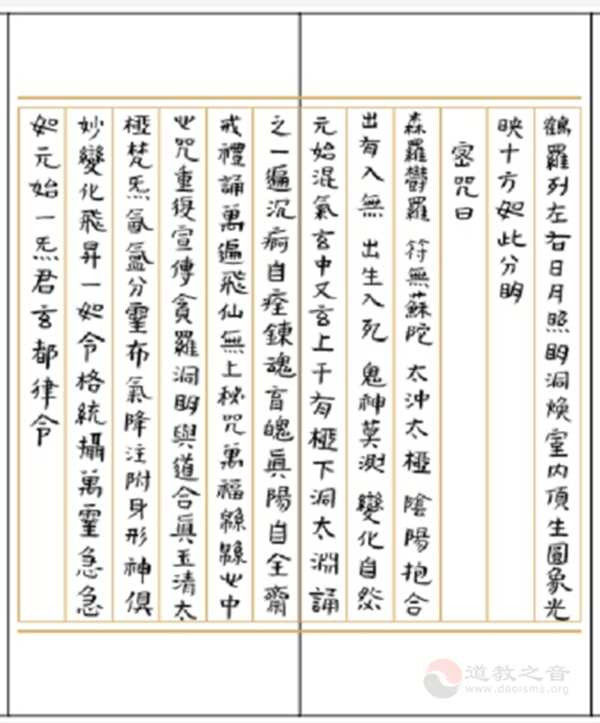 鶴羅列左右日月照明洞煥室內頂生圓象光
映十方如此分明
密咒曰
森羅鬱羅 符無蘇陀 太沖太極 陰陽抱合
出有入無 出生入死 鬼神莫測 變化自然
元始混氣玄中又玄上于有極下洞太淵誦
之一遍沉痾自痊鍊魂育魄真陽自全齋
戒禮誦萬遍飛仙無上秘咒萬福綿綿此中
此咒重復宣傳貪羅洞明與道合真玉清太
極梵炁氤氳分靈布氣降注附身形神俱
妙變化飛昇一如令格統攝萬靈急急
如元始一炁君玄都律令
道教之音
www.daoisms.org